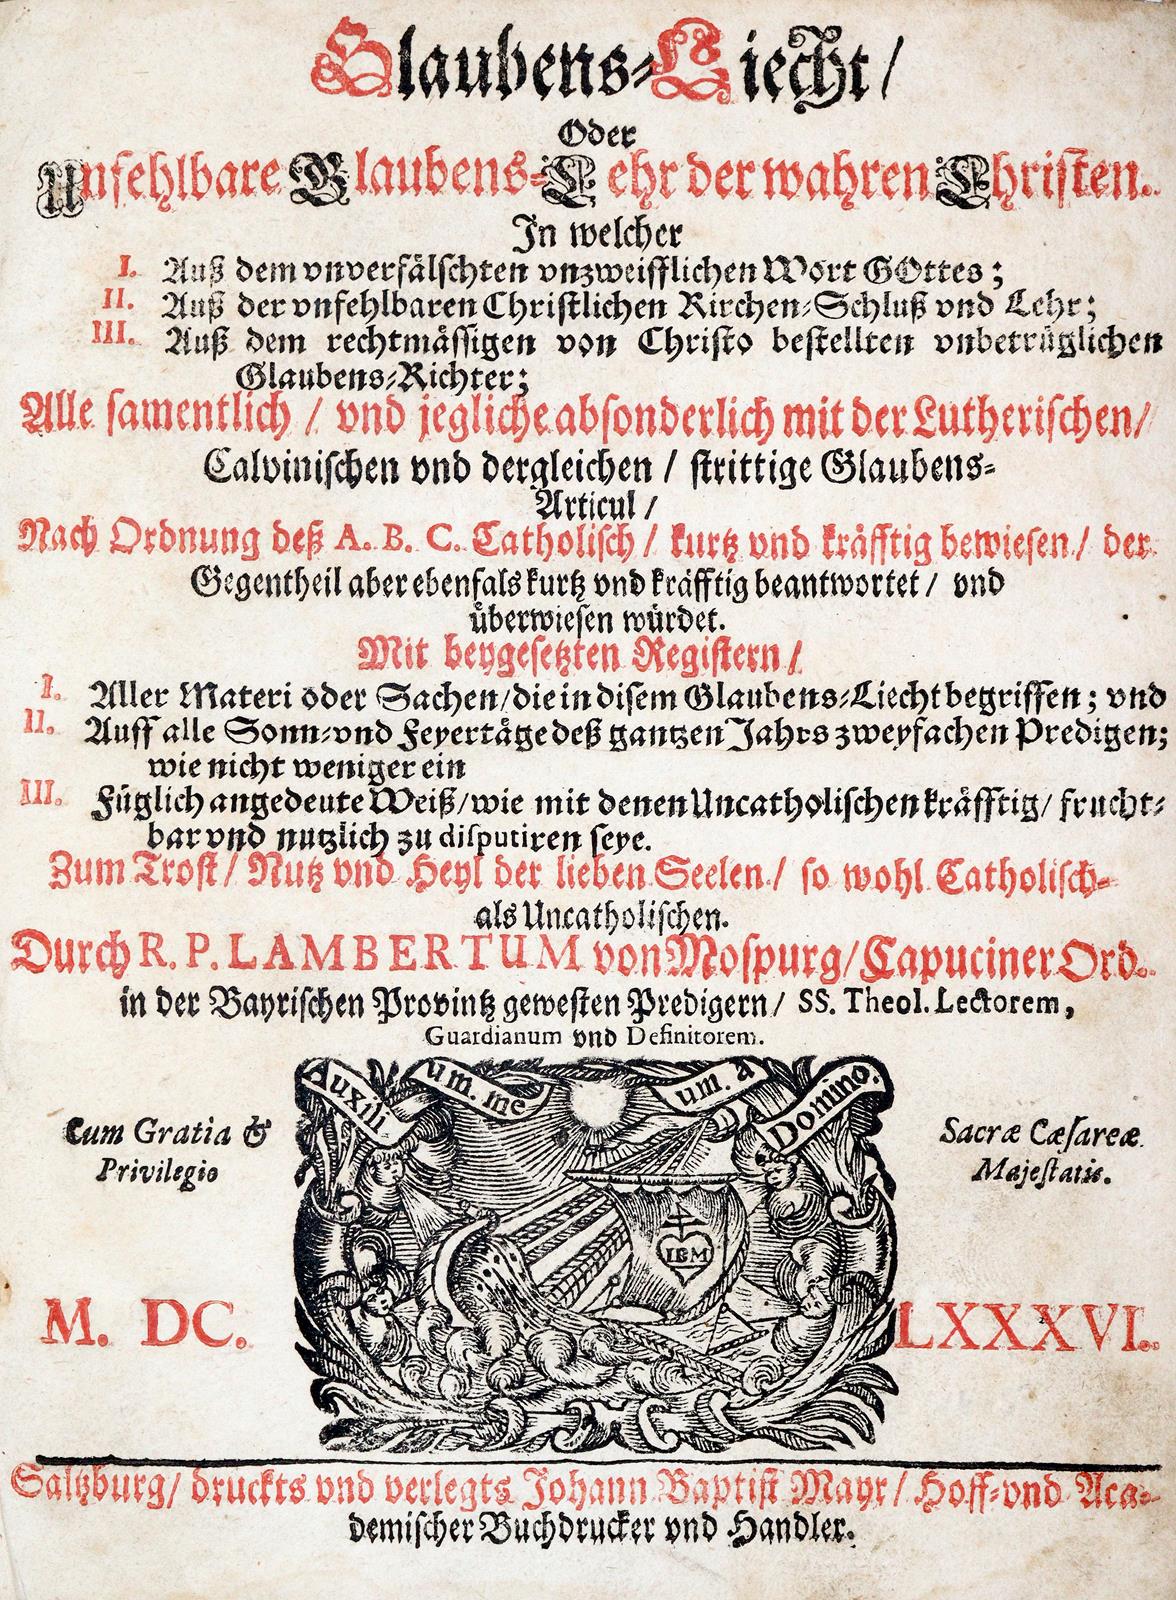 Glaubens-Liecht /
Oder
Unfehlbare Glaubens-Lehr der wahren Christen.
In welcher
I. Auß dem vnverfälschten vnzweifflichen Wort GOttes;
II. Auß der vnfehlbaren Christlichen Kirchen-Schluß vnd Lehr;
III. Auß dem rechtmässigen von Christo bestellten vnbetrüglichen
Glaubens-Richter;
Alle samentlich / vnd jegliche absonderlich mit der Lutherischen /
Calvinischen vnd dergleichen / strittige Glaubens-
Articul /
Nach Ordnung deß A. B. C. Catholisch / kurtz vnd kräfftig bewiesen / der
Gegentheil aber ebenfals kurtz vnd kräfftig beantwortet / vnd
überwiesen würdet.
Mit beygesetzten Registern /
I. Aller Materi oder Sachen / die in disem Glaubens-Liecht begriffen; vnd
II. Auff alle Sonn-vnd Feyertäge deß gantzen Jahrs zweyfachen Predigen;
wie nicht weniger ein
III. Füglich angedeute Weiß / wie mit denen Uncatholischen kräfftig / frucht-
bar vnd nutzlich zu disputiren seye.
Zum Trost / Nutz vnd Heyl der lieben Seelen / so wohl Catholisch-
als Uncatholischen.
Durch R. P. LAMBERTUM von Mospurg / Capuciner Ord.
in der Bayrischen Provintz gewesten Predigern / SS. Theol. Lectorem,
Guardianum vnd Definitorem.
Auxili um. me um. a Domino.
Cum Gratia &
Privilegio
Sacræ Cæsareæ
Majestatis.
IBM
M. DC. LXXXVI.
Saltzburg / druckts vnd verlegts Johann Baptist Mayr / Hoff-vnd Aca-
demischer Buchdrucker vnd Handler.